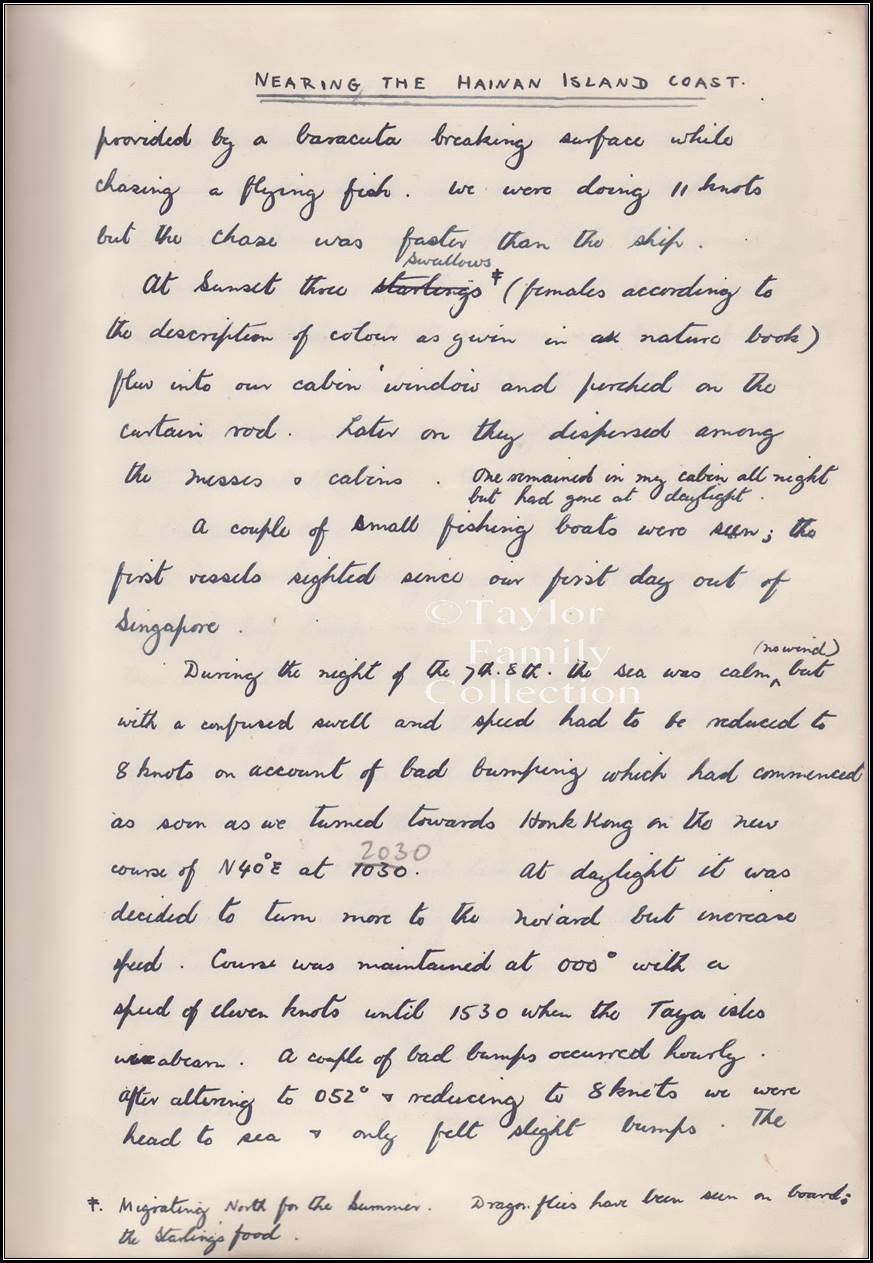 NEARING THE HAINAN ISLAND COAST.
provided by a baracuta breaking surface while
chasing a flying fish. We were doing 11 knots
but the chase was faster than the ship.
swallows
At Sunset three starlings ‡ (females according to
the description of colour as given in a nature book)
flew into our cabin window and perched on the
curtain rod. Later on they dispersed among
the messes & cabins. One remained in my cabin all night
but had gone at daylight.
A couple of small fishing boats were seen; the
first vessels sighted since our first day out of
Singapore.
(no wind)
During the night of the 7th. 8th. the sea was calm ^ but
with a confused swell and speed had to be reduced to
8 knots on account of bad bumping which had commenced
as soon as we turned towards Honk Kong on the new
2030
course of N40°E at 1030. At daylight it was
decided to turn more to the nor'ard but increase
speed. Course was maintained at 000° with a
speed of eleven knots until 1530 when the Taya isles
were abeam. A couple of bad bumps occurred hourly.
After altering to 052° & reducing to 8 knots we were
head to sea & only felt slight bumps. The
‡. Migrating North for the Summer. Dragon flies have been seen on board;
the Starling's food.
©Taylor
Family
Collection